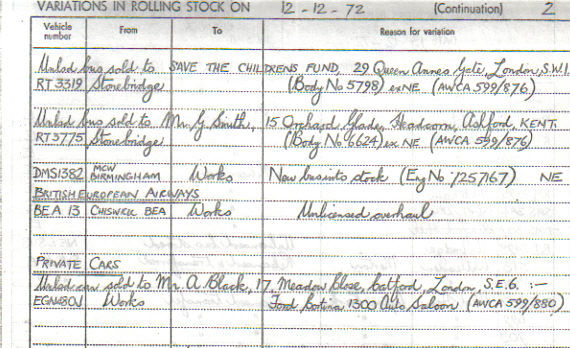 VARIATIONS IN ROLLING STOCK ON 12-12-72 (Continuation) 2
Vehicle number From To Reason for variation
Unlicd bus sold to SAVE THE CHILDRENS FUND, 29 Queen Annes Gate, London, S.W.1
RT3319 Stonebridge (Body No 5798) ex NE (AWCA 599/876)
Unlicd bus sold to Mr. G Smith, 15 Orchard Glade, Headcorn, Ashford, KENT.
RT3775 Stonebridge (Body No 6624) ex NE (AWCA 599/876)
DMS1382 MCW BIRMINGHAM Works New bus into stock (Eng No 1257167) NE
BRITISH EUROPEAN AIRWAYS
BEA 13 CHISWELL BEA Works Unlicensed overhaul
PRIVATE CARS
Unlicd car sold to Mr. A Black, 17, Meadow Close, Catford, London, S.E.6. :—
EGN480J Works Ford Cortina 1300 Auto Saloon (AWCA 599/880)